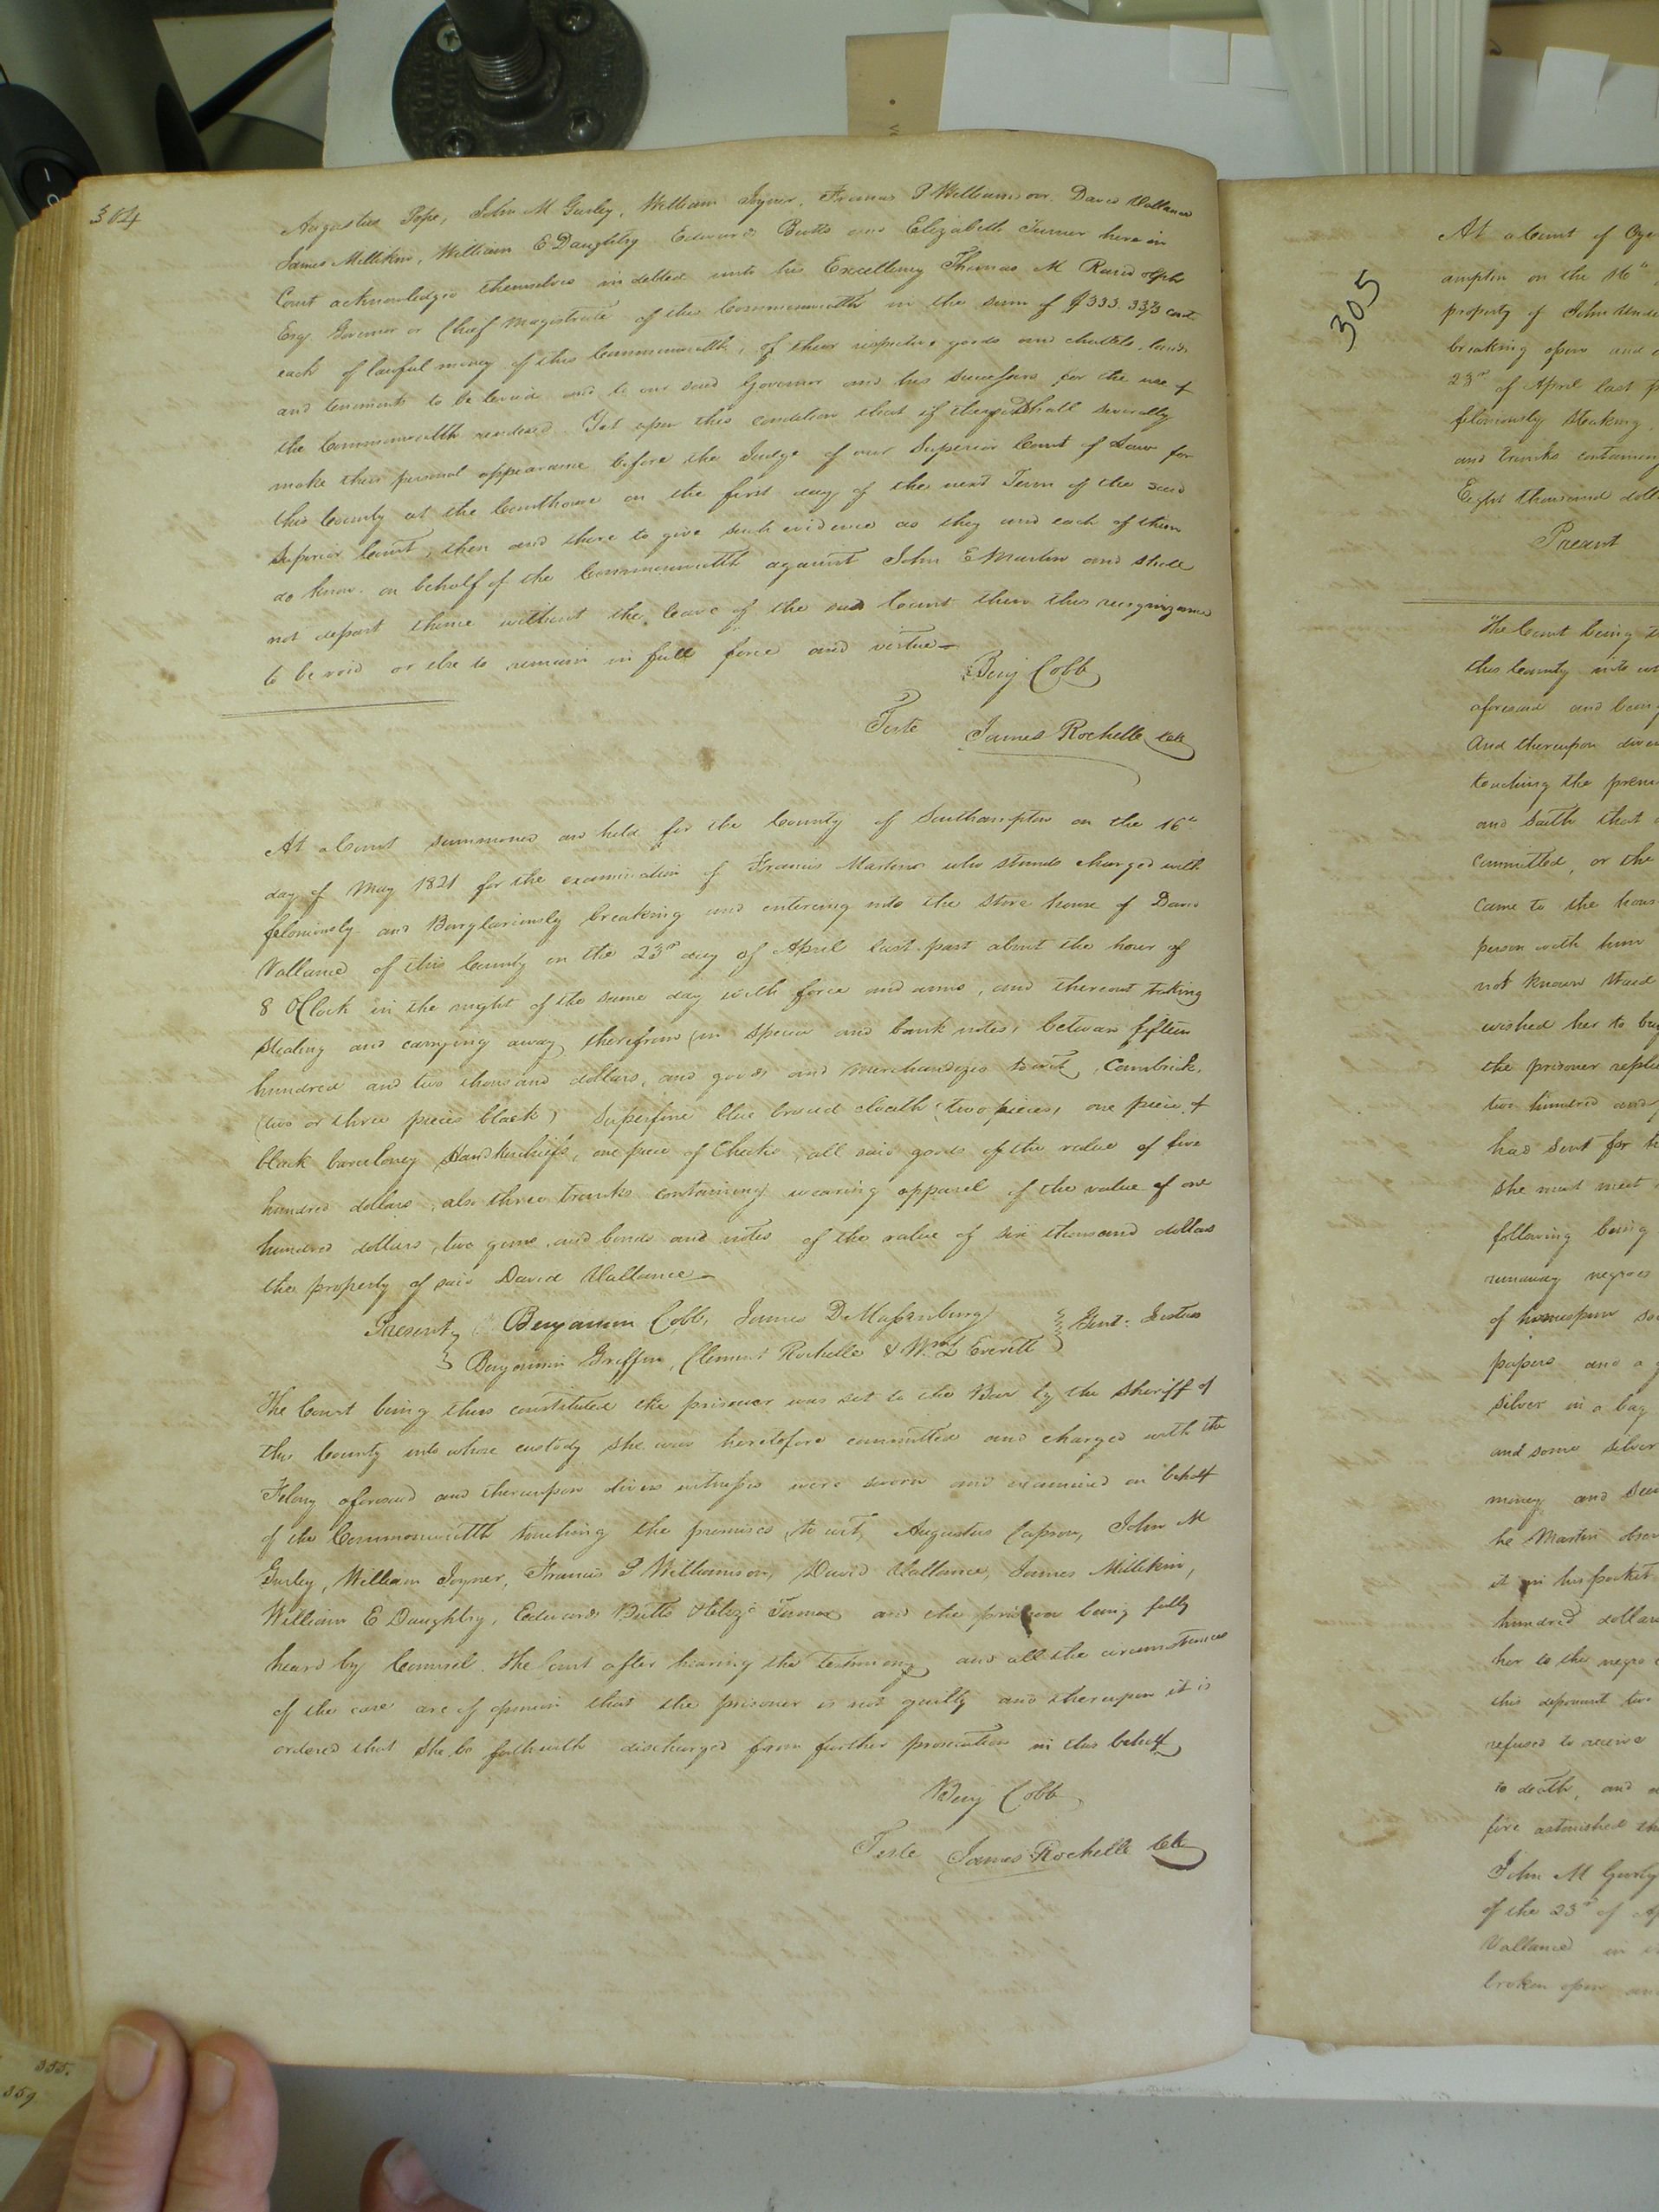 304
Augustus Pope, John M Gurley, William Joyner, Francis P Williamson, David Vallance
James Millikin, William E Daughtry Edward Butts and Elizabeth Turner here in
Court acknowledged themselves indebted unto his Excellency Thomas M Randolph
Esq Governor or Chief Magistrate of this Commonwealth in the sum of $333.33⅓ cents
each of lawful money of this Commonwealth, of their respective goods and chattels lands
and tenements to be levied and to our said Governor and his successors for the use of
the Commonwealth rendered. Yet upon this condition that if they shall severally
make their personal appearance before the Judge of our Superior Court of Law for
this County at the Courthouse on the first day of the next Term of the said
Superior Court, then and there to give such evidence as they and each of them
do know on behalf of the Commonwealth against John E Martin and shall
not depart thence without the leave of the said Court then this recognizance
to be void or else to remain in full force and virtue
Benj Cobb
Teste James Rochelle Clk
At a Court summoned and held for the County of Southampton on the 16th
day of May 1821 for the examination of Francis Martin who stands charged with
feloniously and Burglariously breaking and entering into the store house of David
Vallance of this County on the 23rd day of April last past about the hour of
8 OClock in the night of the same day with force and arms, and thereout taking
stealing and carrying away therefrom (in specie and bank notes) between fifteen
hundred and two thousand dollars, and goods and merchandizes towit, Cambrick,
(two or three pieces black) superfine blue broad cloath (two pieces, one piece of
black barcelony Handkerchiefs, one piece of Checks, all said goods of the value of five
hundred dollars, also three trunks containing wearing apparel of the value of one
hundred dollars, two guns, and bonds and notes of the value of six thousand dollars
the property of said David Vallance
Present Benjamin Cobb, James D Massenburg
Gent. Justices
Benjamin Griffin, Clement Rochelle & Wm D Everett
The Court being thus constituted the prisoner was set to the Bar by the Sheriff of
this County into whose custody she was heretofore committed and charged with the
Felony aforesaid and thereupon divers witnesses were sworn and examined on behalf
of the Commonwealth touching the premises, to wit, Augustus Capron, John M
Gurley, William Joyner, Francis P Williamson, David Vallance, James Millikin,
William E Daughtry, Edward Butts & Eliz. Turner and the prisoner being fully
heard by Counsel. The Court after hearing the testimony and all the circumstances
of the case are of opinion that the prisoner is not guilty and thereupon it is
ordered that she be forthwith discharged from further prosecution in this behalf
Benj Cobb
Teste James Rochelle Clk
305
At a Court of Oye
ampton on the 16th
property of John
breaking open and
23rd of April last p
feloniously stealing
and trunks containing
Eight thousand doll
Present
The Court being
this County into w
aforesaid and being
And thereupon diver
touching the premi
and saith that
committed, or the
came to the hous
person with him
not known
wished her to buy
the prisoner replie
two hundred and
had sent for h
she must meet
following being
runaway negroes
of homespun
papers and a
silver in a bag
and some silver
money and
he Martin
it in his pocket
hundred dollars
her to the negro
this deponent two
refused to receive
to death, and
fire astonished th
John M Gurley
of the 23rd of Ap
Vallance in
broken open and
355.
359